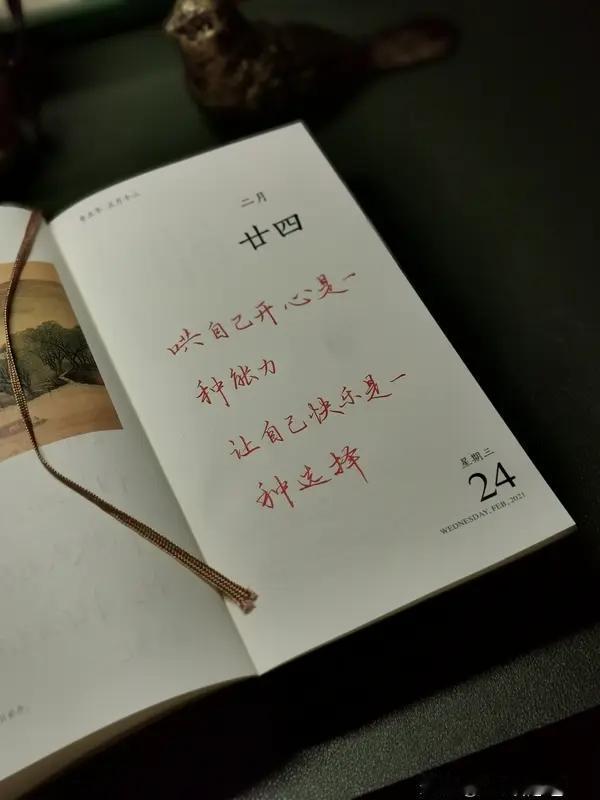 辛丑年 正月十三
二月
廿四
哄自己开心是一
种能力
让自己快乐是一
种选择
星期三
24
WEDNESDAY, FEB, 2021